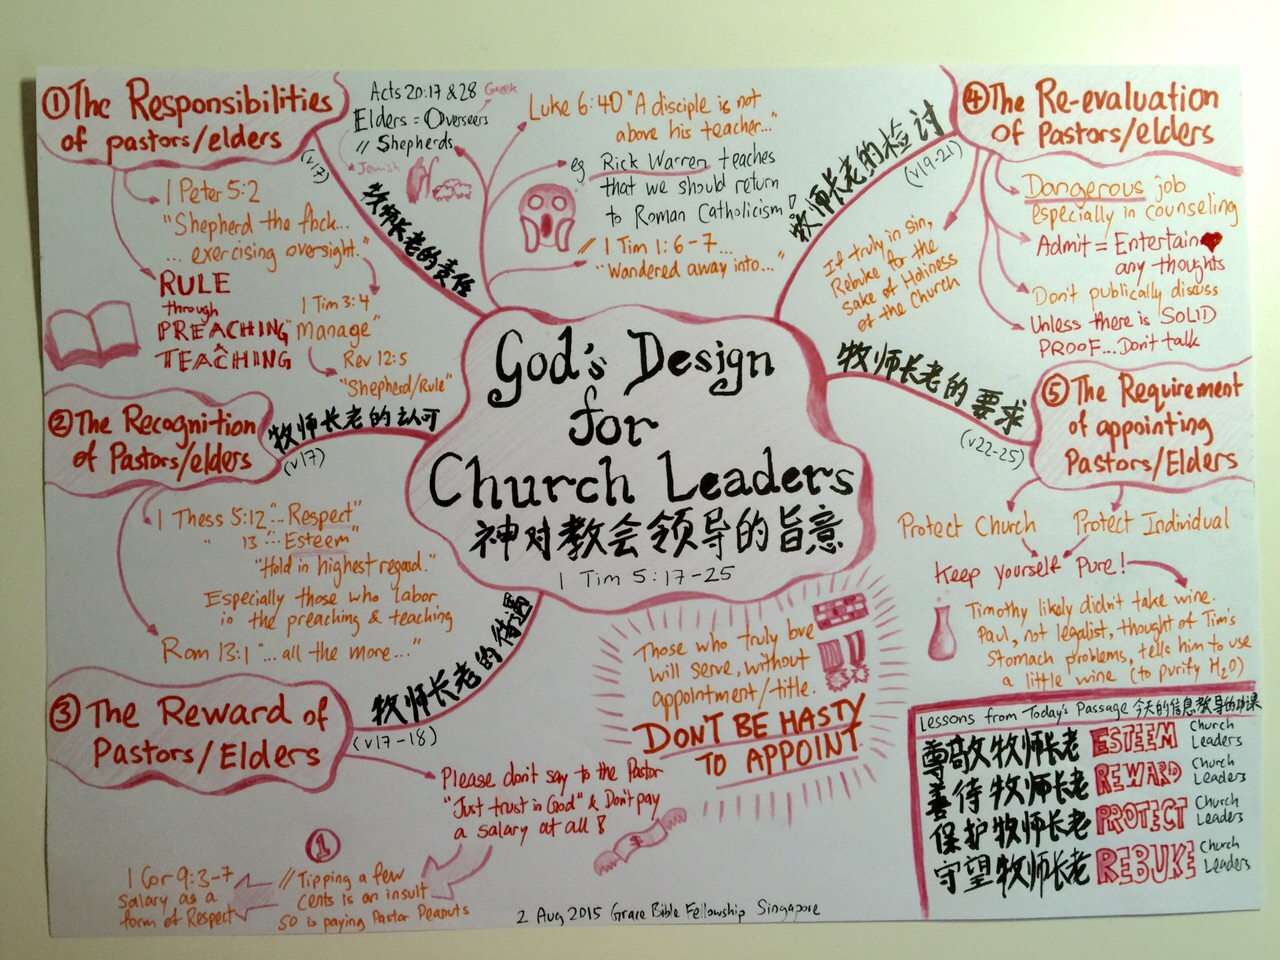 God's Design
for
Church Leaders
神对教会领导的旨意
1 Tim 5:17-25
①The Responsibilities
of pastors/elders
(v17)
牧师长老的责任
1 Peter 5:2
"Shepherd the flock...
... exercising oversight."
RULE
through
PREACHING
^
TEACHING
1 Tim 3:4
"Manage"
Rev 12:5
"Shepherd/Rule"
Acts 20:17 & 28
Greek
Elders = Overseers
// Shepherds
Jewish
Luke 6:40 "A disciple is not
above his teacher..."
eg Rick Warren teaches
that we should return
to Roman Catholicism!
// 1 Tim 1:6-7...
"Wandered away into..."
②The Recognition
of Pastors/elders
牧师长老的认可
(v17)
1 Thess 5:12 "..Respect"
" 13 "..Esteem"
"Hold in highest regard."
Especially those who labor
in the preaching & teaching
Rom 13:1 "...all the more..."
③ The Reward of
Pastors/Elders
牧师长老的待遇
(v17-18)
Please don't say to the Pastor
"Just trust in God" & Don't pay
a salary at all!
1
// Tipping a few
cents is an insult
so is paying Pastor Peanuts
1 Cor 9:3-7
Salary as a
form of Respect
④The Re-evaluation
of Pastors/elders
牧师长老的检讨
(v19-21)
If truly in sin,
Rebuke for the
sake of Holiness
of the Church
Dangerous job
especially in counseling
Admit = Entertain
any thoughts
Don't publically discuss
Unless there is SOLID
PROOF... Don't talk
⑤The Requirement
of appointing
Pastors/Elders
牧师长老的要求
(v22-25)
Protect Church
Protect Individual
Keep yourself Pure!
Timothy likely didn't take wine.
Paul, not legalist, thought of Tim's
Stomach problems, tells him to use
a little wine (to purify H₂O)
Those who truly love
will serve, without
appointment/title.
DON'T BE HASTY
TO APPOINT
$
Lessons from Today's Passage 今天的信息教导的功课
尊敬牧师长老 ESTEEM Church Leaders
善待牧师长老 REWARD Church Leaders
保护牧师长老 PROTECT Church Leaders
守望牧师长老 REBUKE Church Leaders
2 Aug 2015 Grace Bible Fellowship Singapore